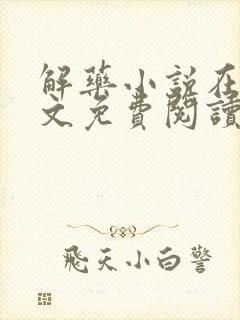 解藥小說在
文免費閱讀
飛天小白警